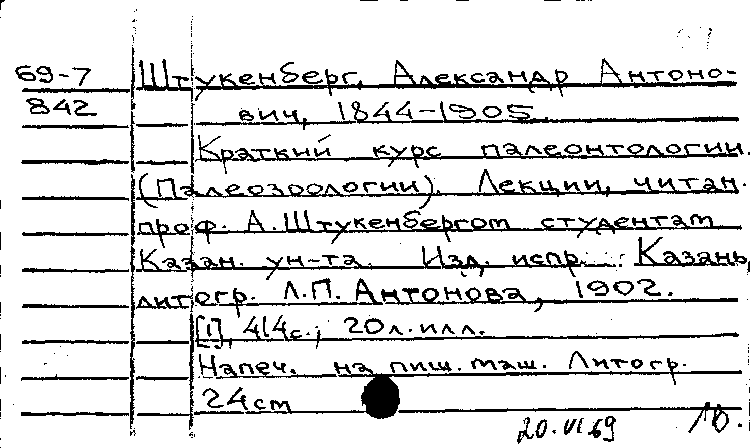 69-7 Штукенберг, Александр Антоно-
842 вич, 1844-1905
Краткий курс палеонтологии.
(Палеозоология). Лекции, читан.
проф. А. Штукенбергом студентам
Казан. ун-та. Изд. испр. Казань,
литогр. Л.П. Антонова, 1902.
[1], 414 с.; 20 л. илл.
Напеч. на пиш. маш. Литогр.
24 cm
20.VI.69